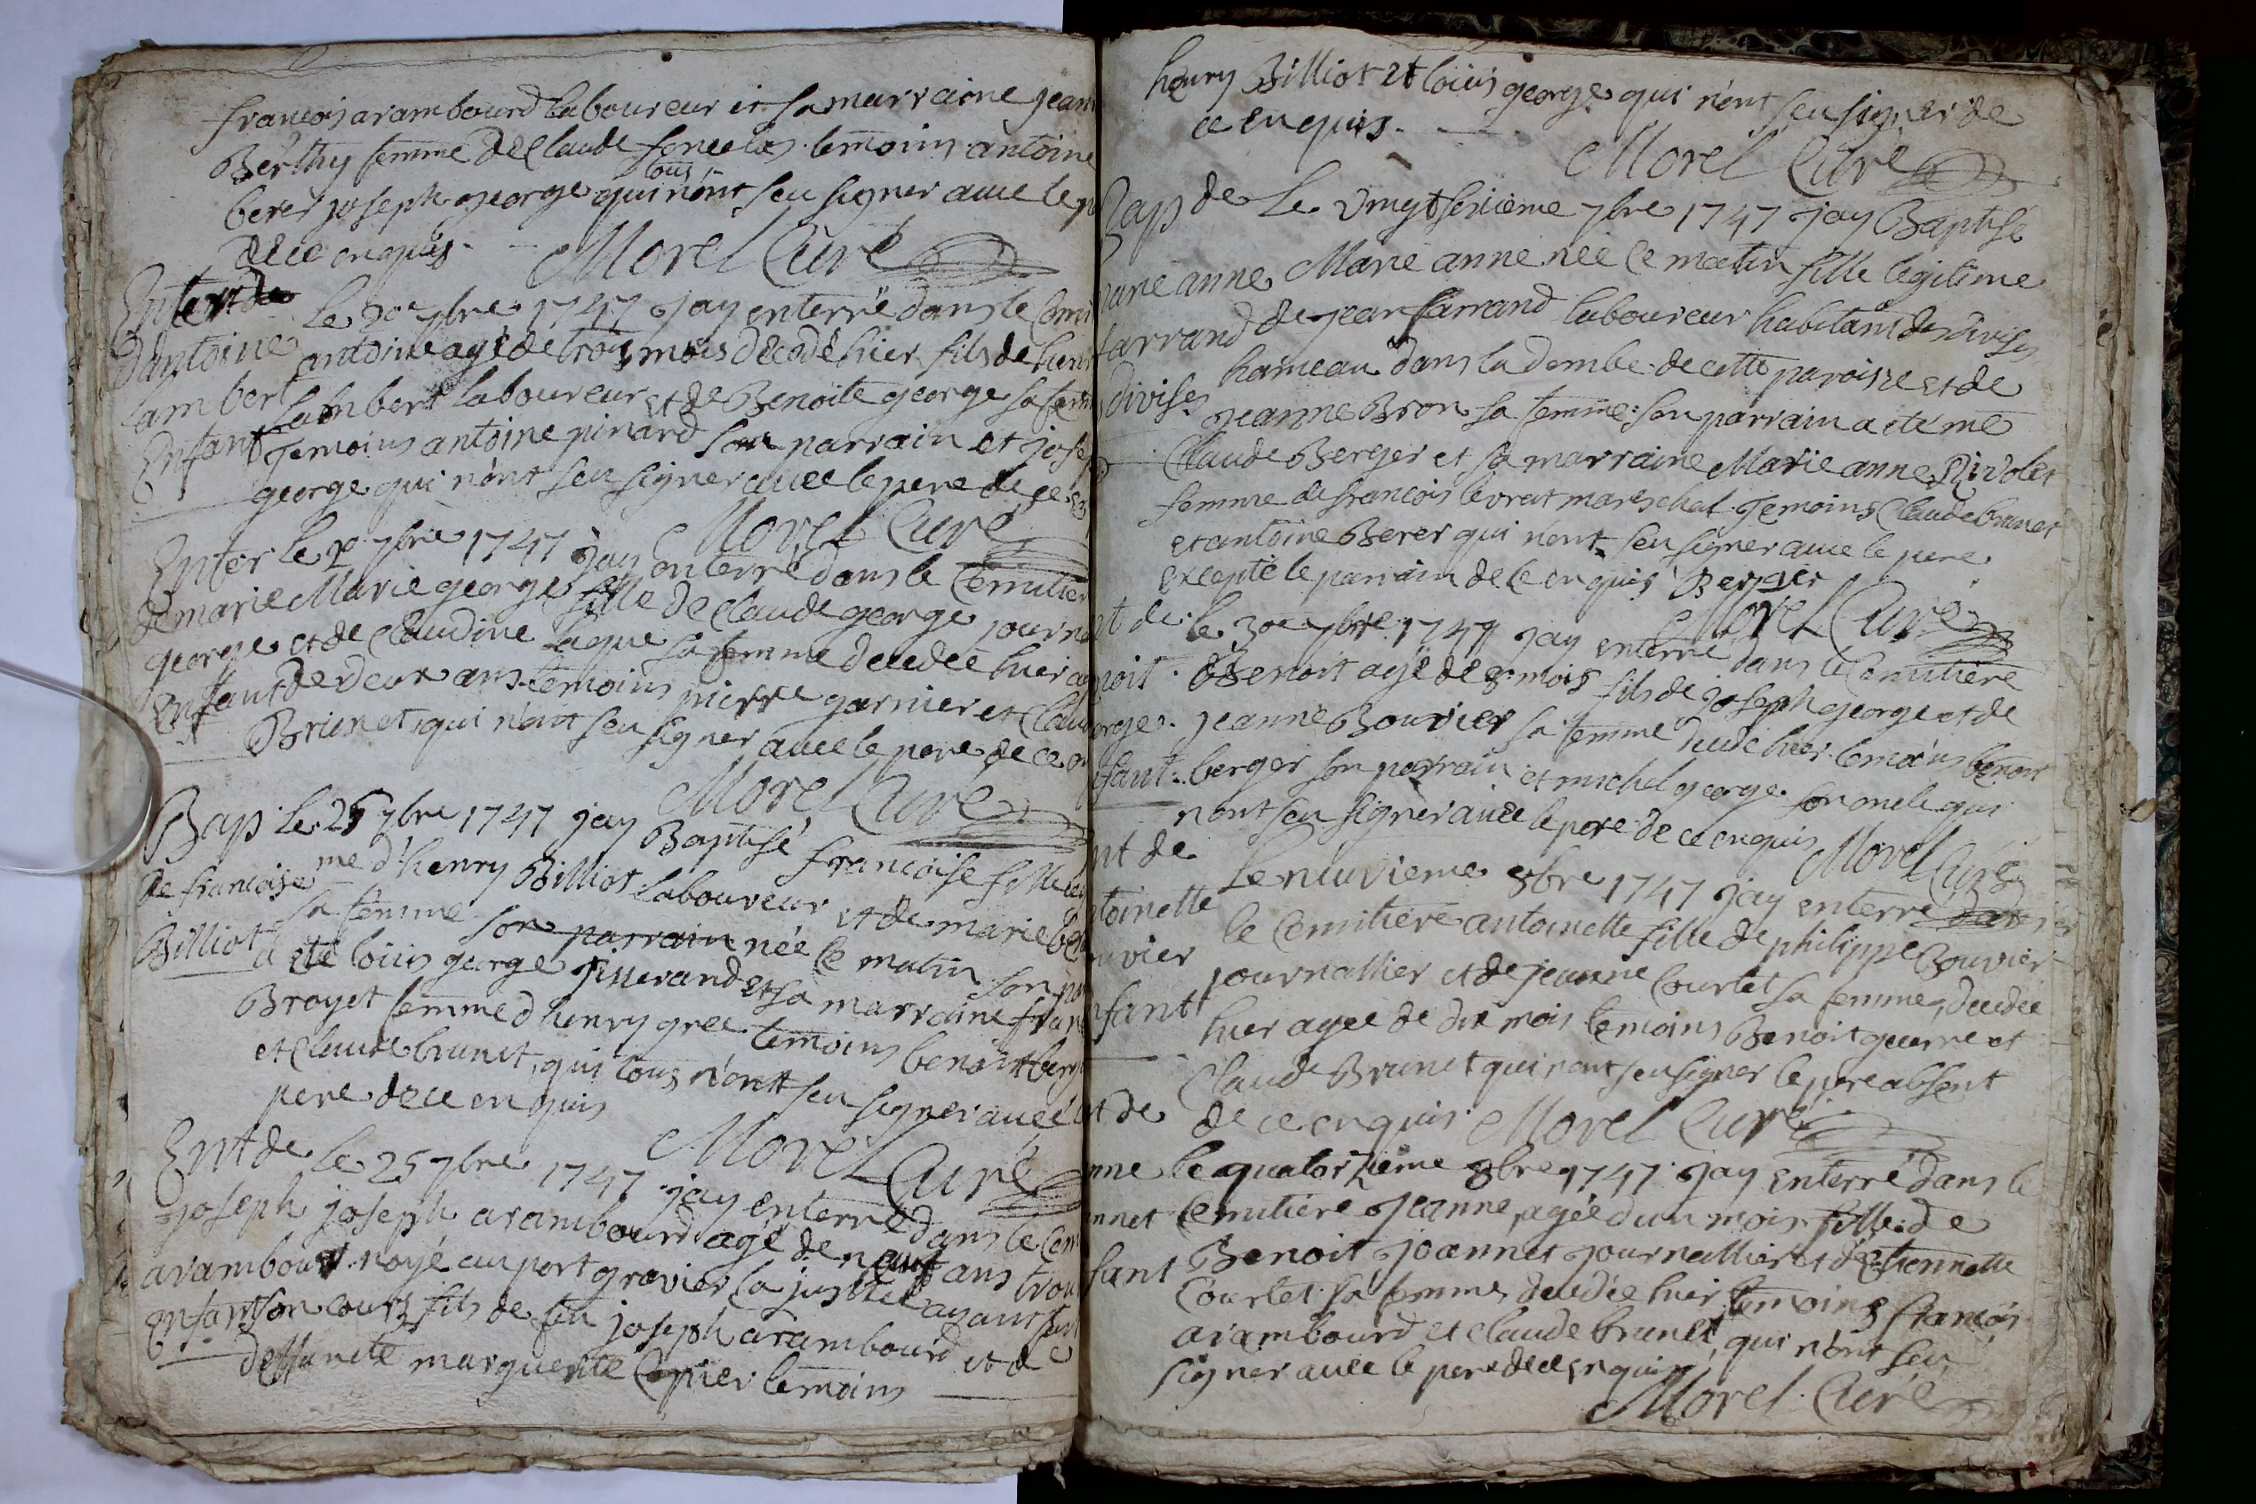 francois arambourd laboureur et sa marraine jean
Berthy femme de Claude foncelas temoins antoine
berer joseph george tous qui nont seu signer avec le
de ce enquis. Morel Curé
Entert de
Le 20e 7bre 1747 jay enterré dans le Cemi
d'antoine antoine agé de trois mois decedé hier fils de hen
Lambert Lambert laboureur et de Benoite george sa fem
Enfant Temoins antoine pinard son parrain et jose
george qui nont seu signer avec le pere de ce
Morel Curé
Enter le 7bre 1747 jay enterré dans le Cemitier
de marie Marie george fille de Claude george journ
george et de Claudine sa femme decedeé hier
Enfant de deux ans temoins pierre garnier et Clau
Brunet qui nont seu signer avec le pere de ce
Morel Curé
Bap Le 25 7bre 1747 jay Baptisé francoise fille
de francoise me d'henry Billiot laboureur et de marie
Billiot sa femme son parrain née ce matin son
a eté loüis george Tisserand et sa marraine fran
Broyet femme d'henry gree temoins benoit berg
et Claude brunet, qui tous nont seu signer avec
pere de ce enquis
Morel Curé
Ent de Le 25 7bre 1747 jay enterré dans le Cem
joseph joseph arambourd agé de neuf ans trou
arambour noyé au port gravier la justice ayant
enfant son cours fils de feu joseph arambourd et de
deffuncte marguerite Copier temoins
henry Billiot et loüis george qui nont seu signer de
ce enquis.
Morel Curé
Bap de Le vingtsixieme 7bre 1747 jay Baptisé
marie anne Marie anne née Ce matin fille legitime
farrand de jean farrand laboureur habitant de divises
divises hameau dans la dombe de cette paroisse et de
jeanne Bron sa femme: son parrain a eté me
Claude Berger et sa marraine Marie anne Rivolet
femme de francois levrat mareschal Temoins Claude brunet
et antoine Berer qui nont seu signer avec le pere
Excepté le parrain de Ce enquis Berger
Morel Curé
nt de le 30e 7bre 1747 jay enterré dans le Cemitiere
noit Benoit agé de 8 mois fils de joseph george et de
orge jeanne Bouvier sa femme decede hier temoins benoit
fant berger son parrain et michel george son oncle qui
nont seu signer avec le pere de ce enquis
Morel Curé
nt de Le neuvieme 8bre 1747 jay enterré
toinette le Cemitiere antoinette fille de philippe Bouvier
uvier journallier et de jeanne Courtet sa femme, decedée
fant hier agée de dix mois temoins Benoit guerre et
Claude Brunet qui nont seu signer le pere absent
de ce enquis Morel Curé
t de
nne le quatorzieme 8bre 1747 jay enterré dans le
nnet Cemitiere Jeanne, agée dun mois fille de
fant Benoit joannet journallier et d'etiennette
Courtet sa femme decedée hier temoins francois
arambourd et claude brunet, qui n'ont seu
signer avec le pere de ce enquis
Morel Curé